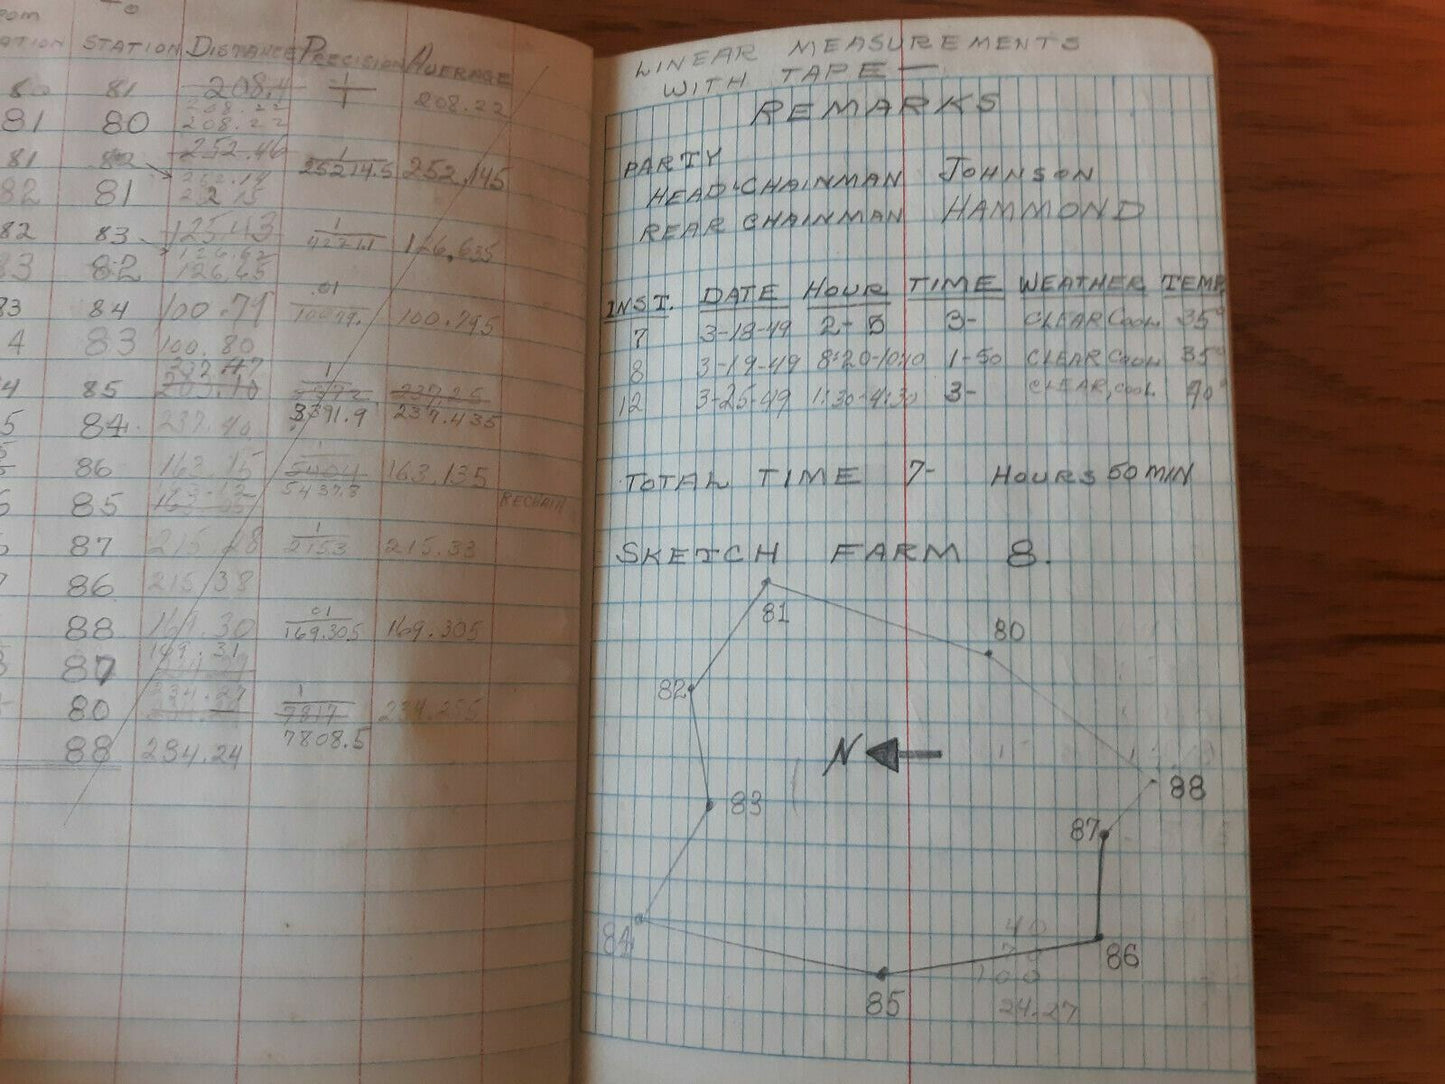 STATION STATION DISTANCE PRECISION AVERAGE
80 81 208.4 208.22
208.22
81 80 208.22
81 82 252.46 1/25214.5 252.145
252.14
82 81
82 83 125.43 126.635
126.62
83 82 126.65
83 84 100.79 .01 100.795
4 83 100.80
4 85 1 237.25
3391.9 237.435
5 84 237.40
86 163.15 1/5404 163.135
5437.8
85 RECHAIN
87 1/2153 215.33
86 215.38
88 169.30 .01/169.305 169.305
87 169.31
80 234.27 1/7817 234.255
7808.5
88 234.24
LINEAR MEASUREMENTS
WITH TAPE—
REMARKS
PARTY
HEAD CHAINMAN JOHNSON
REAR CHAINMAN HAMMOND
INST. DATE HOUR TIME WEATHER TEMP.
7 3-18-49 2-5 3- CLEAR, COOL 35°
8 3-19-49 8:20-10:10 1-50 CLEAR, COOL 35°
12 3-25-49 1:30-4:30 3- CLEAR, COOL 40°
TOTAL TIME 7- HOURS 50 MIN
SKETCH FARM 8.
81
80
82
N
88
83
87
40
84
86
100
85
24.27